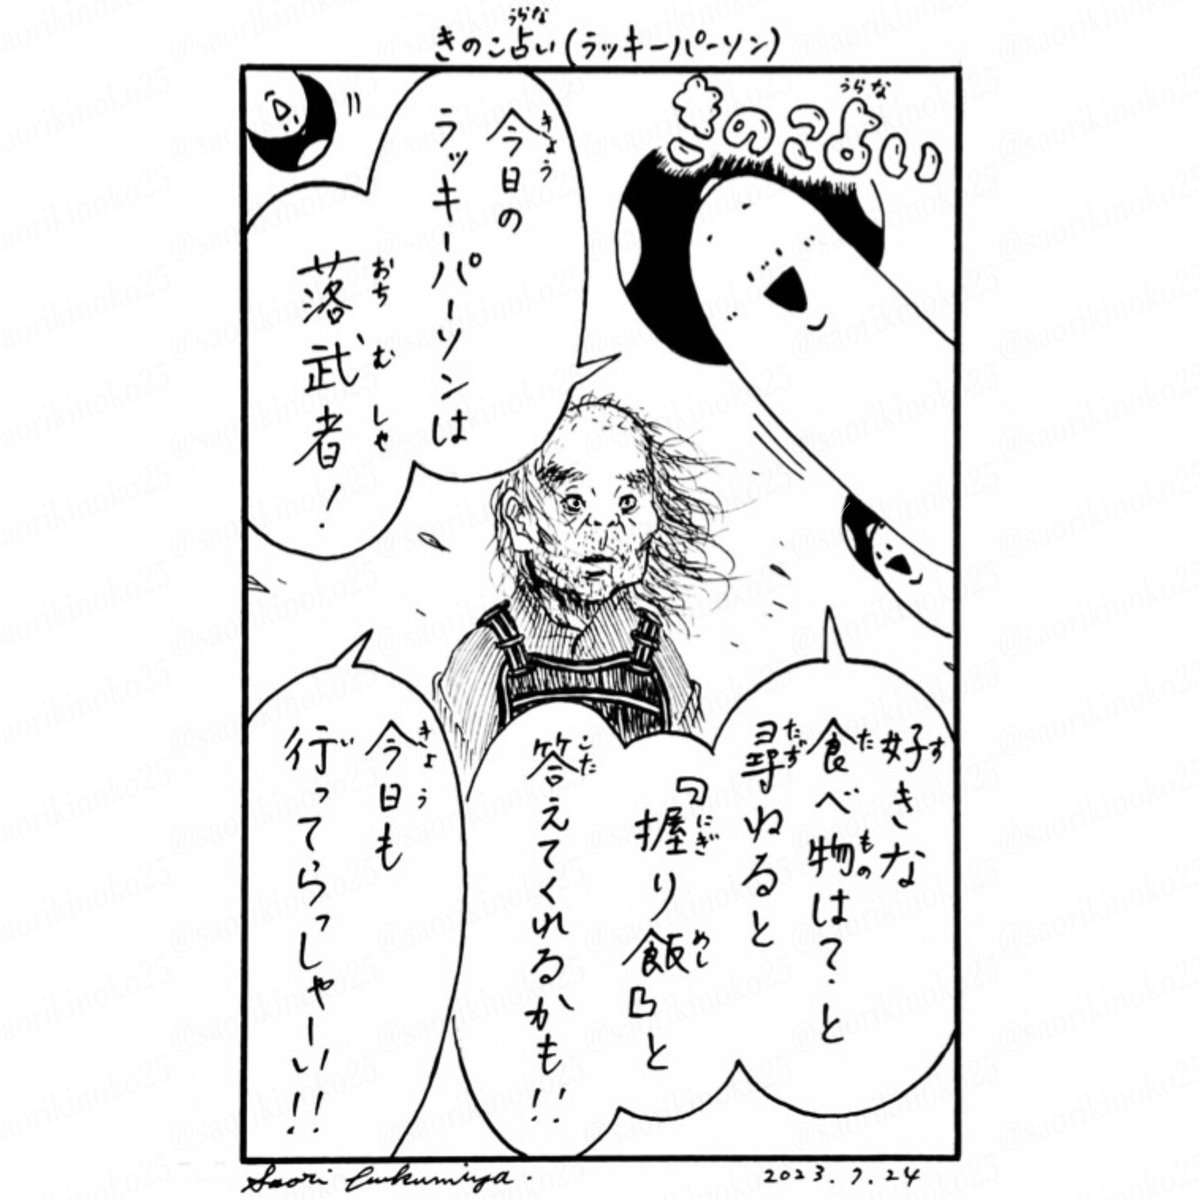 きのこ占い(ラッキーパーソン)
きのこ占い
今日の
ラッキーパーソンは
落武者!
好きな
食べ物は?と
尋ねると
『握り飯』と
答えてくれるかも!!
今日も
行ってらっしゃーい!!
Saori Fukumiya.
2023.7.24
@saorikinoko25